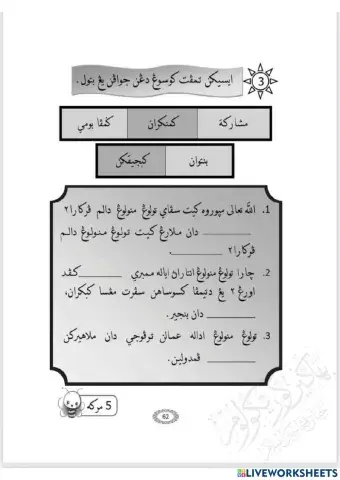 3
ايسيكن تمڤت كوسوڠ دڠن جواڤن يڠ بتول.
مشاركة كمنكران كمڤا بومي
بنتوان كبجيقكن
1. الله تعالى مپوروه كيت سڤاي تولوڠ منولوڠ دالم ڤركارا٢
________ دان ملارڠ كيت تولوڠ منولوڠ دالم
ڤركارا٢ ________.
2. چارا تولوڠ منولوڠ انتاراڽ اياله ممبري ________كڤد
اورڠ ٢ يڠ دتيمڤا كسوساهن سڤرت مڠسا كبكرن،
________ دان بنجير.
3. تولوڠ منولوڠ اداله عملن ترڤوجي دان ملاهيركن
________ ڤمدولين.
5 مركه
62
LIVEWORKSHEETS